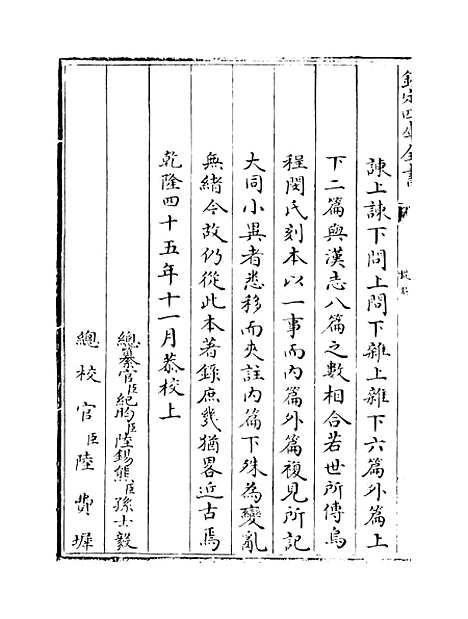 欽定四庫全書
提要
諫上諫下問上問下雜上雜下六篇外篇上
下二篇與漢志八篇之數相合若世所傳烏
程閔氏刻本以一事而內篇外篇複見所記
大同小異者悉移而夾註內篇下殊為變亂
無緒今故仍從此本著錄庶幾猶畧近古焉
乾隆四十五年十一月恭校上
總纂官臣紀昀臣陸錫熊臣孫士毅
總校官臣陸費墀